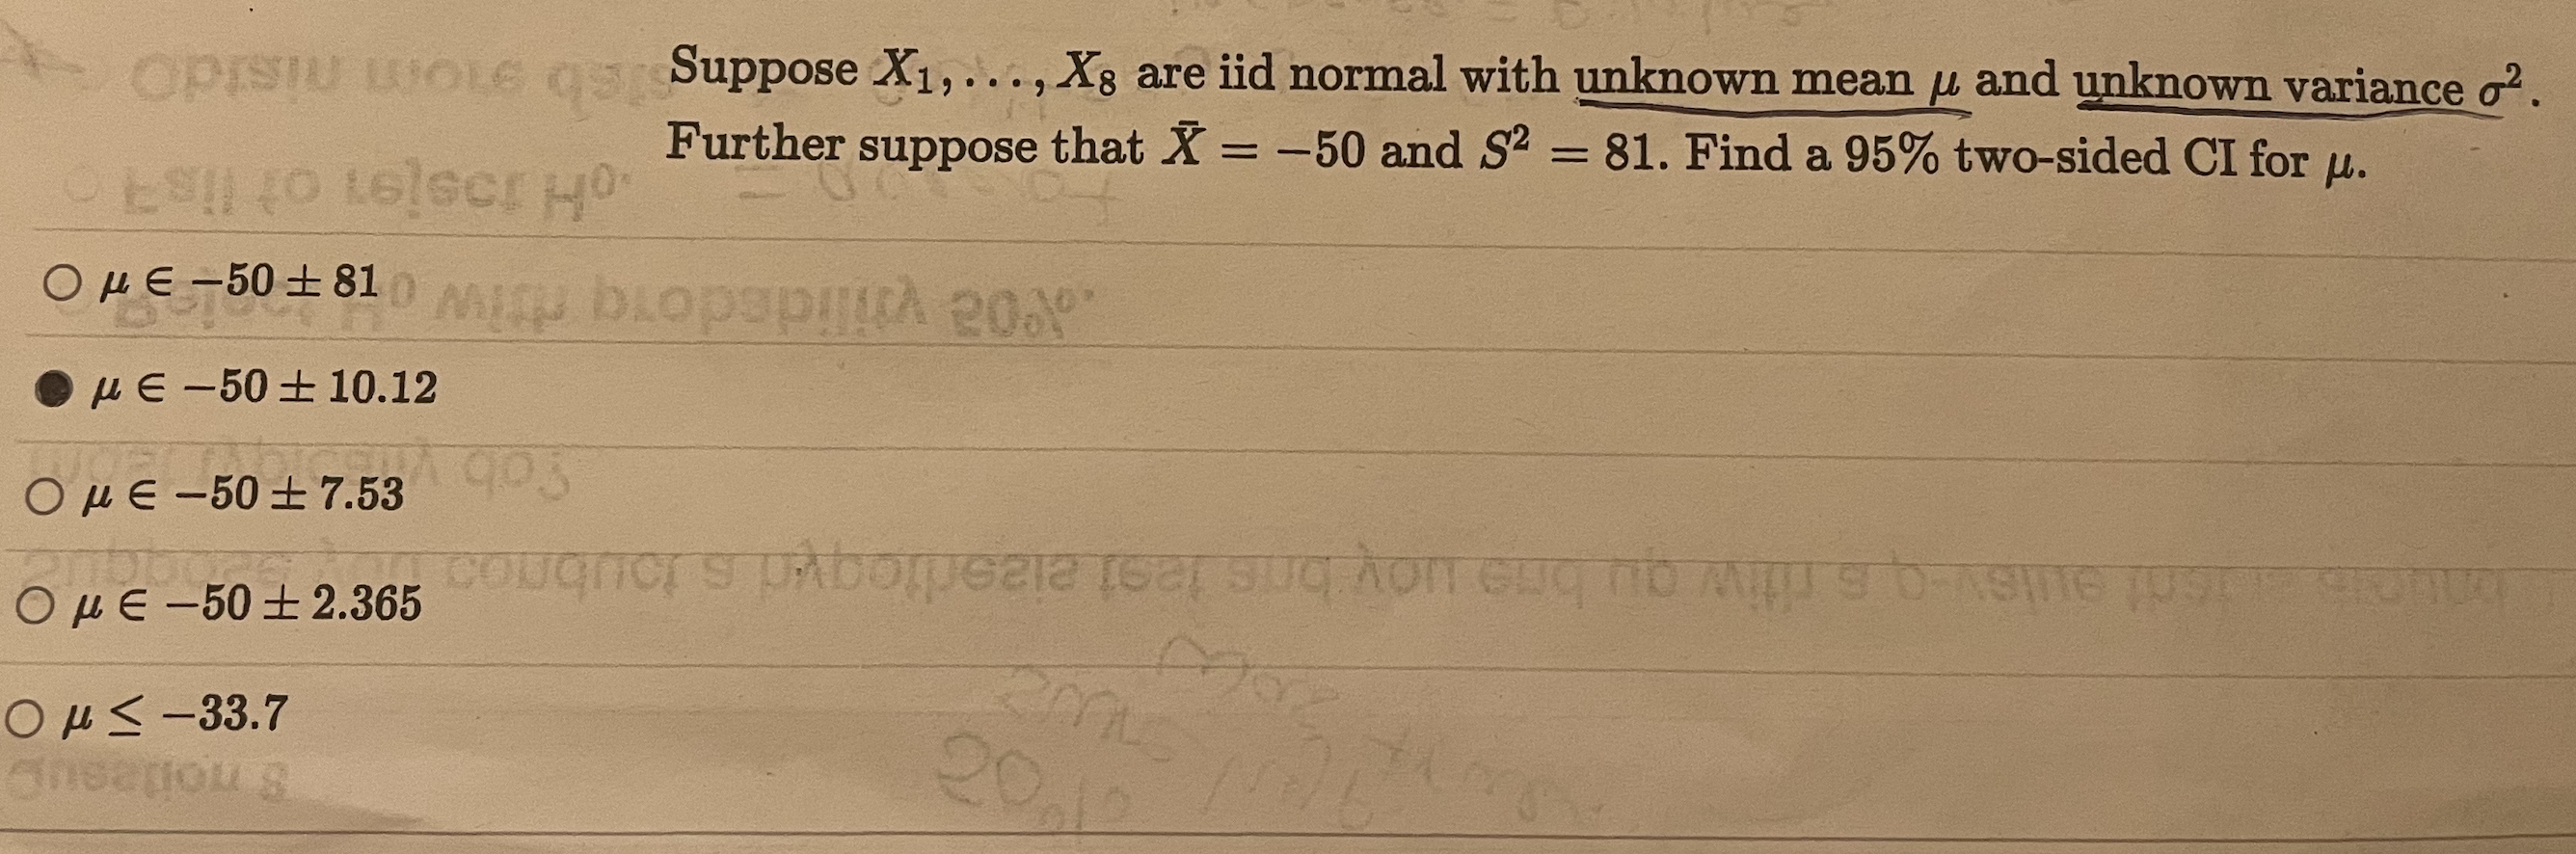 Suppose X₁, . . . , X₈ are iid normal with unknown mean μ and unknown variance σ².
Further suppose that X̄ = −50 and S² = 81. Find a 95% two-sided CI for μ.
μ ∈ −50 ± 81
μ ∈ −50 ± 10.12
μ ∈ −50 ± 7.53
μ ∈ −50 ± 2.365
μ ≤ −33.7